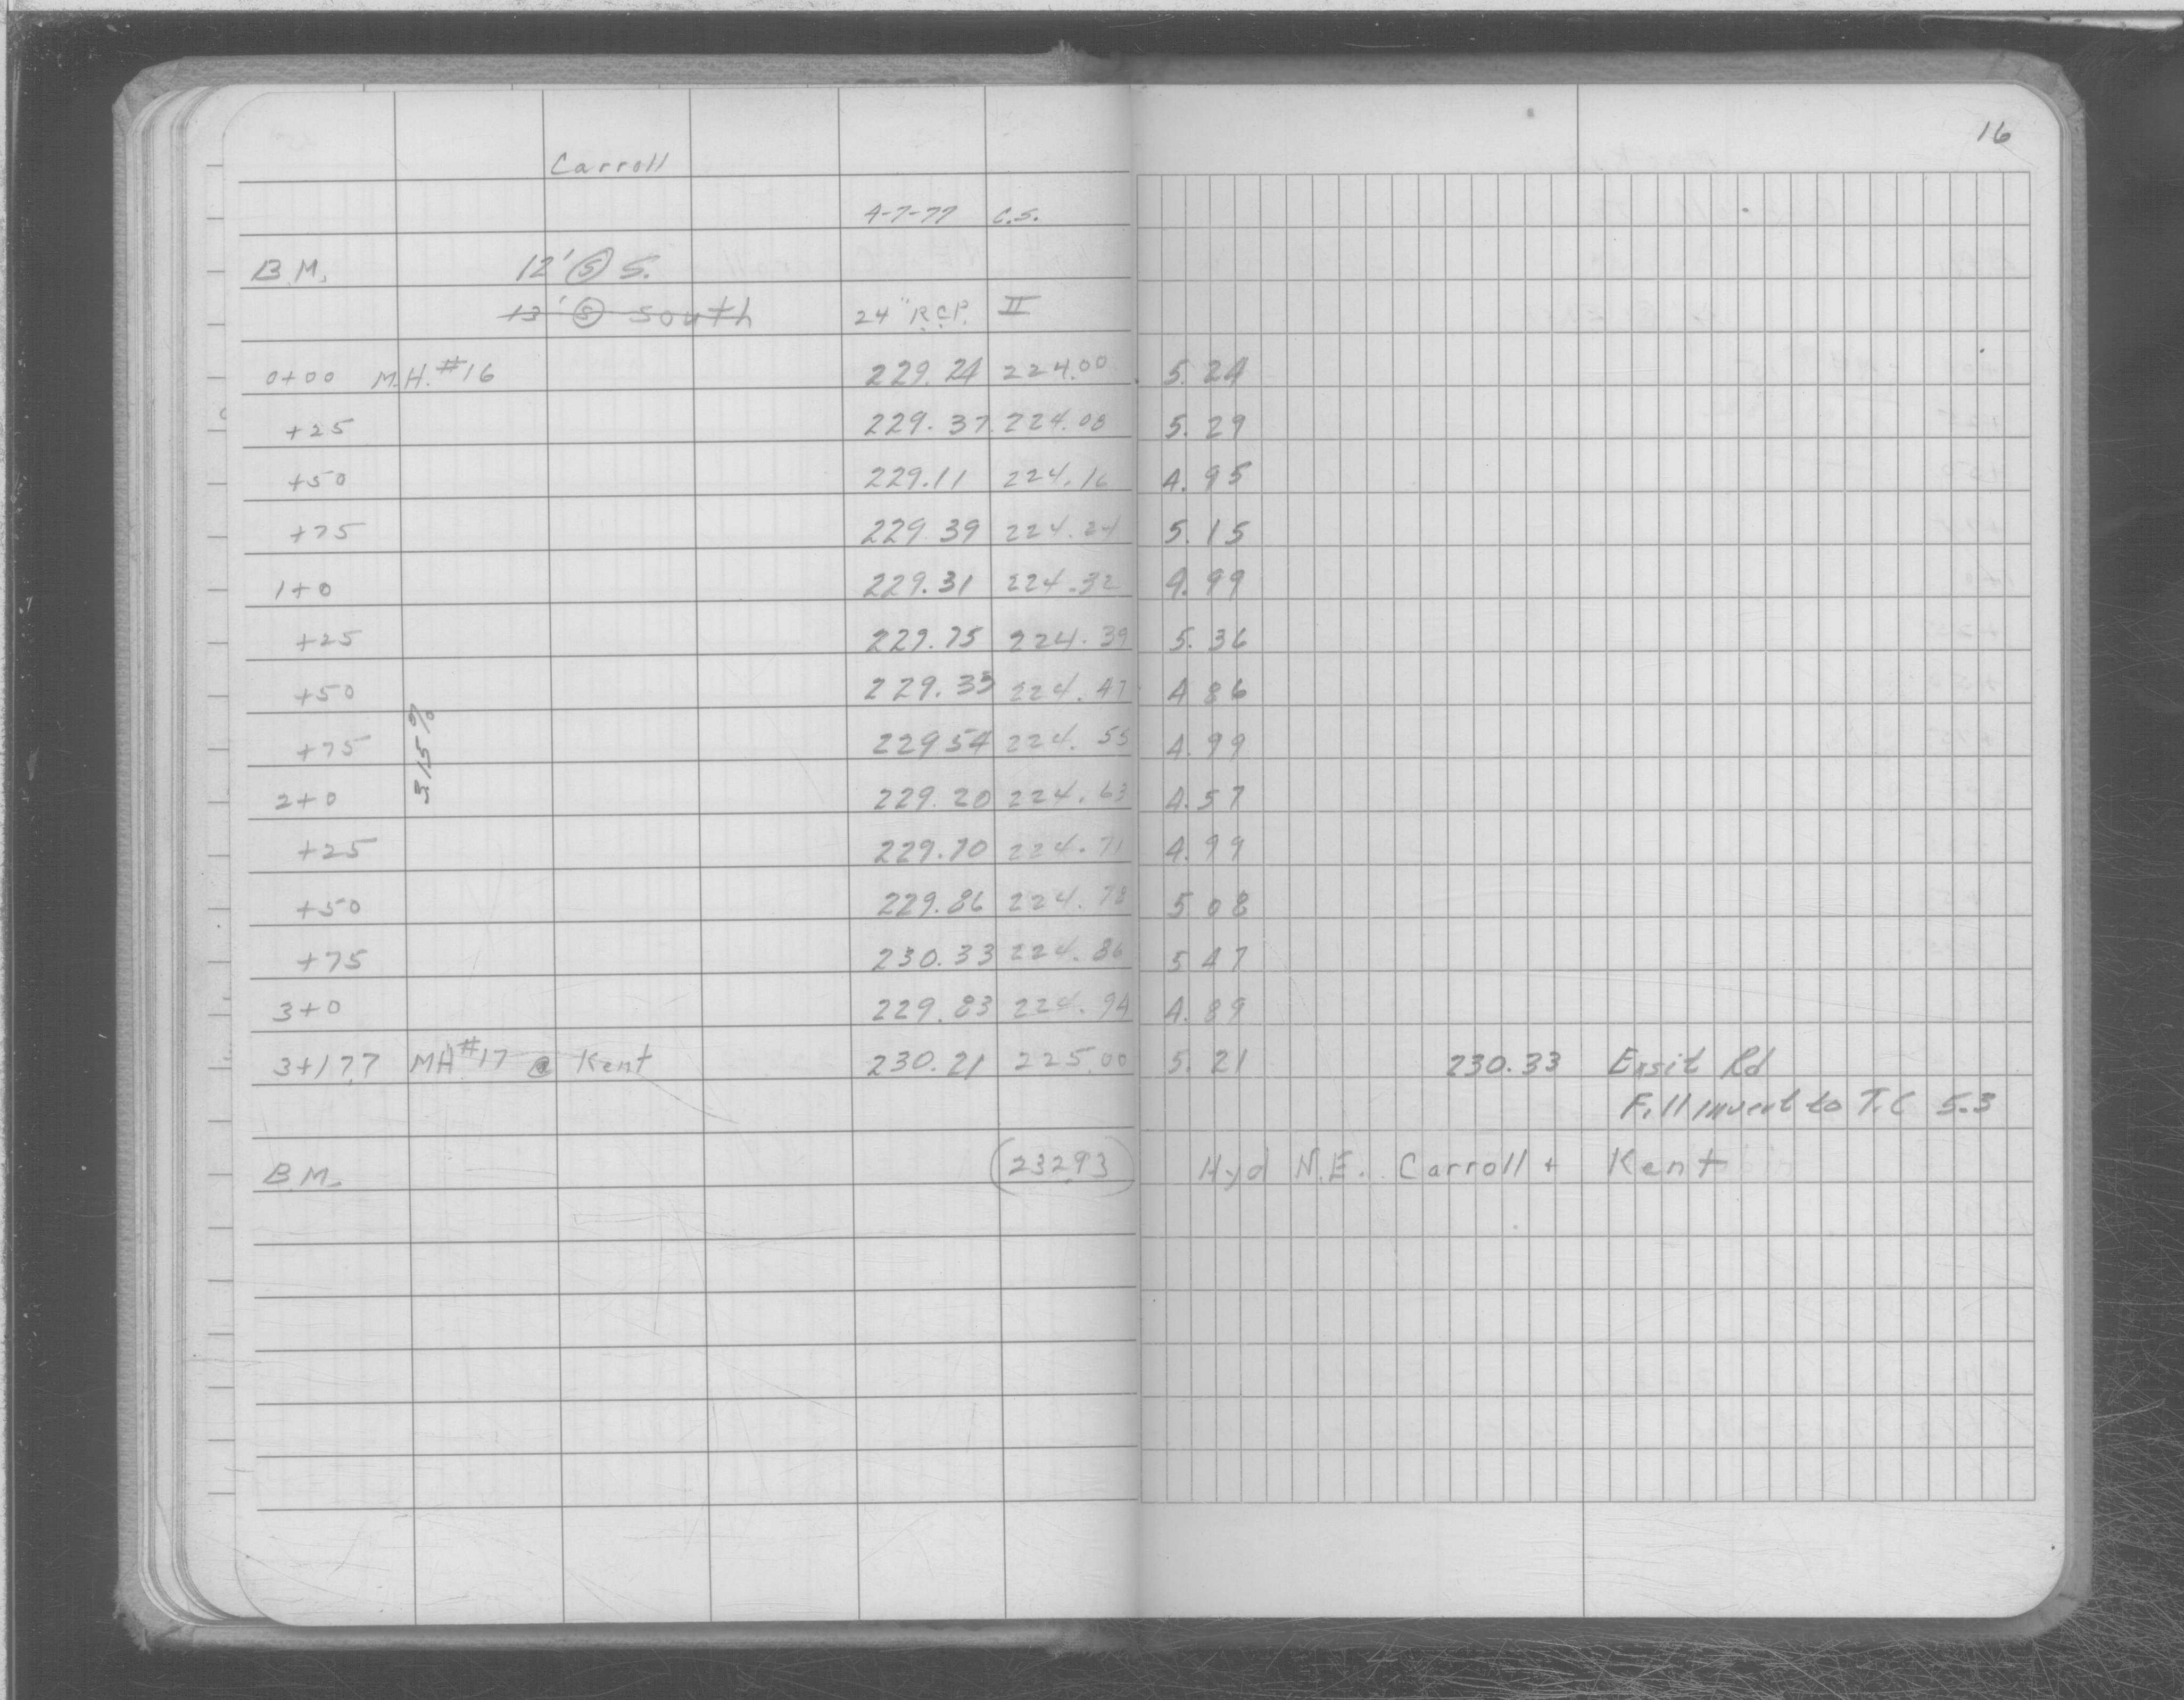 16
Carroll
4-7-77 C.S.
B.M. 12' Ⓢ S.
13' Ⓢ South 24" R.C.P. II
0+00 M.H. #16 229.24 224.00 5.24
+25 229.37 224.08 5.29
+50 229.11 224.16 4.95
+75 229.39 224.24 5.15
1+0 229.31 224.32 4.99
+25 229.75 224.39 5.36
+50 229.33 224.47 4 86
+75 22954 224.55 4.99
3/5%
2+0 229.20 224.63 4.57
+25 229.70 224.71 4.99
+50 229.86 224.78 5 08
+75 230.33 224.86 5 47
3+0 229.83 224.94 4.89
3+17.7 MH #17 @ Kent 230.21 225.00 5.21 230.33 Exsit Rd
Fill invert to T.C 5.3
B.M. (232.93) Hyd N.E. Carroll + Kent